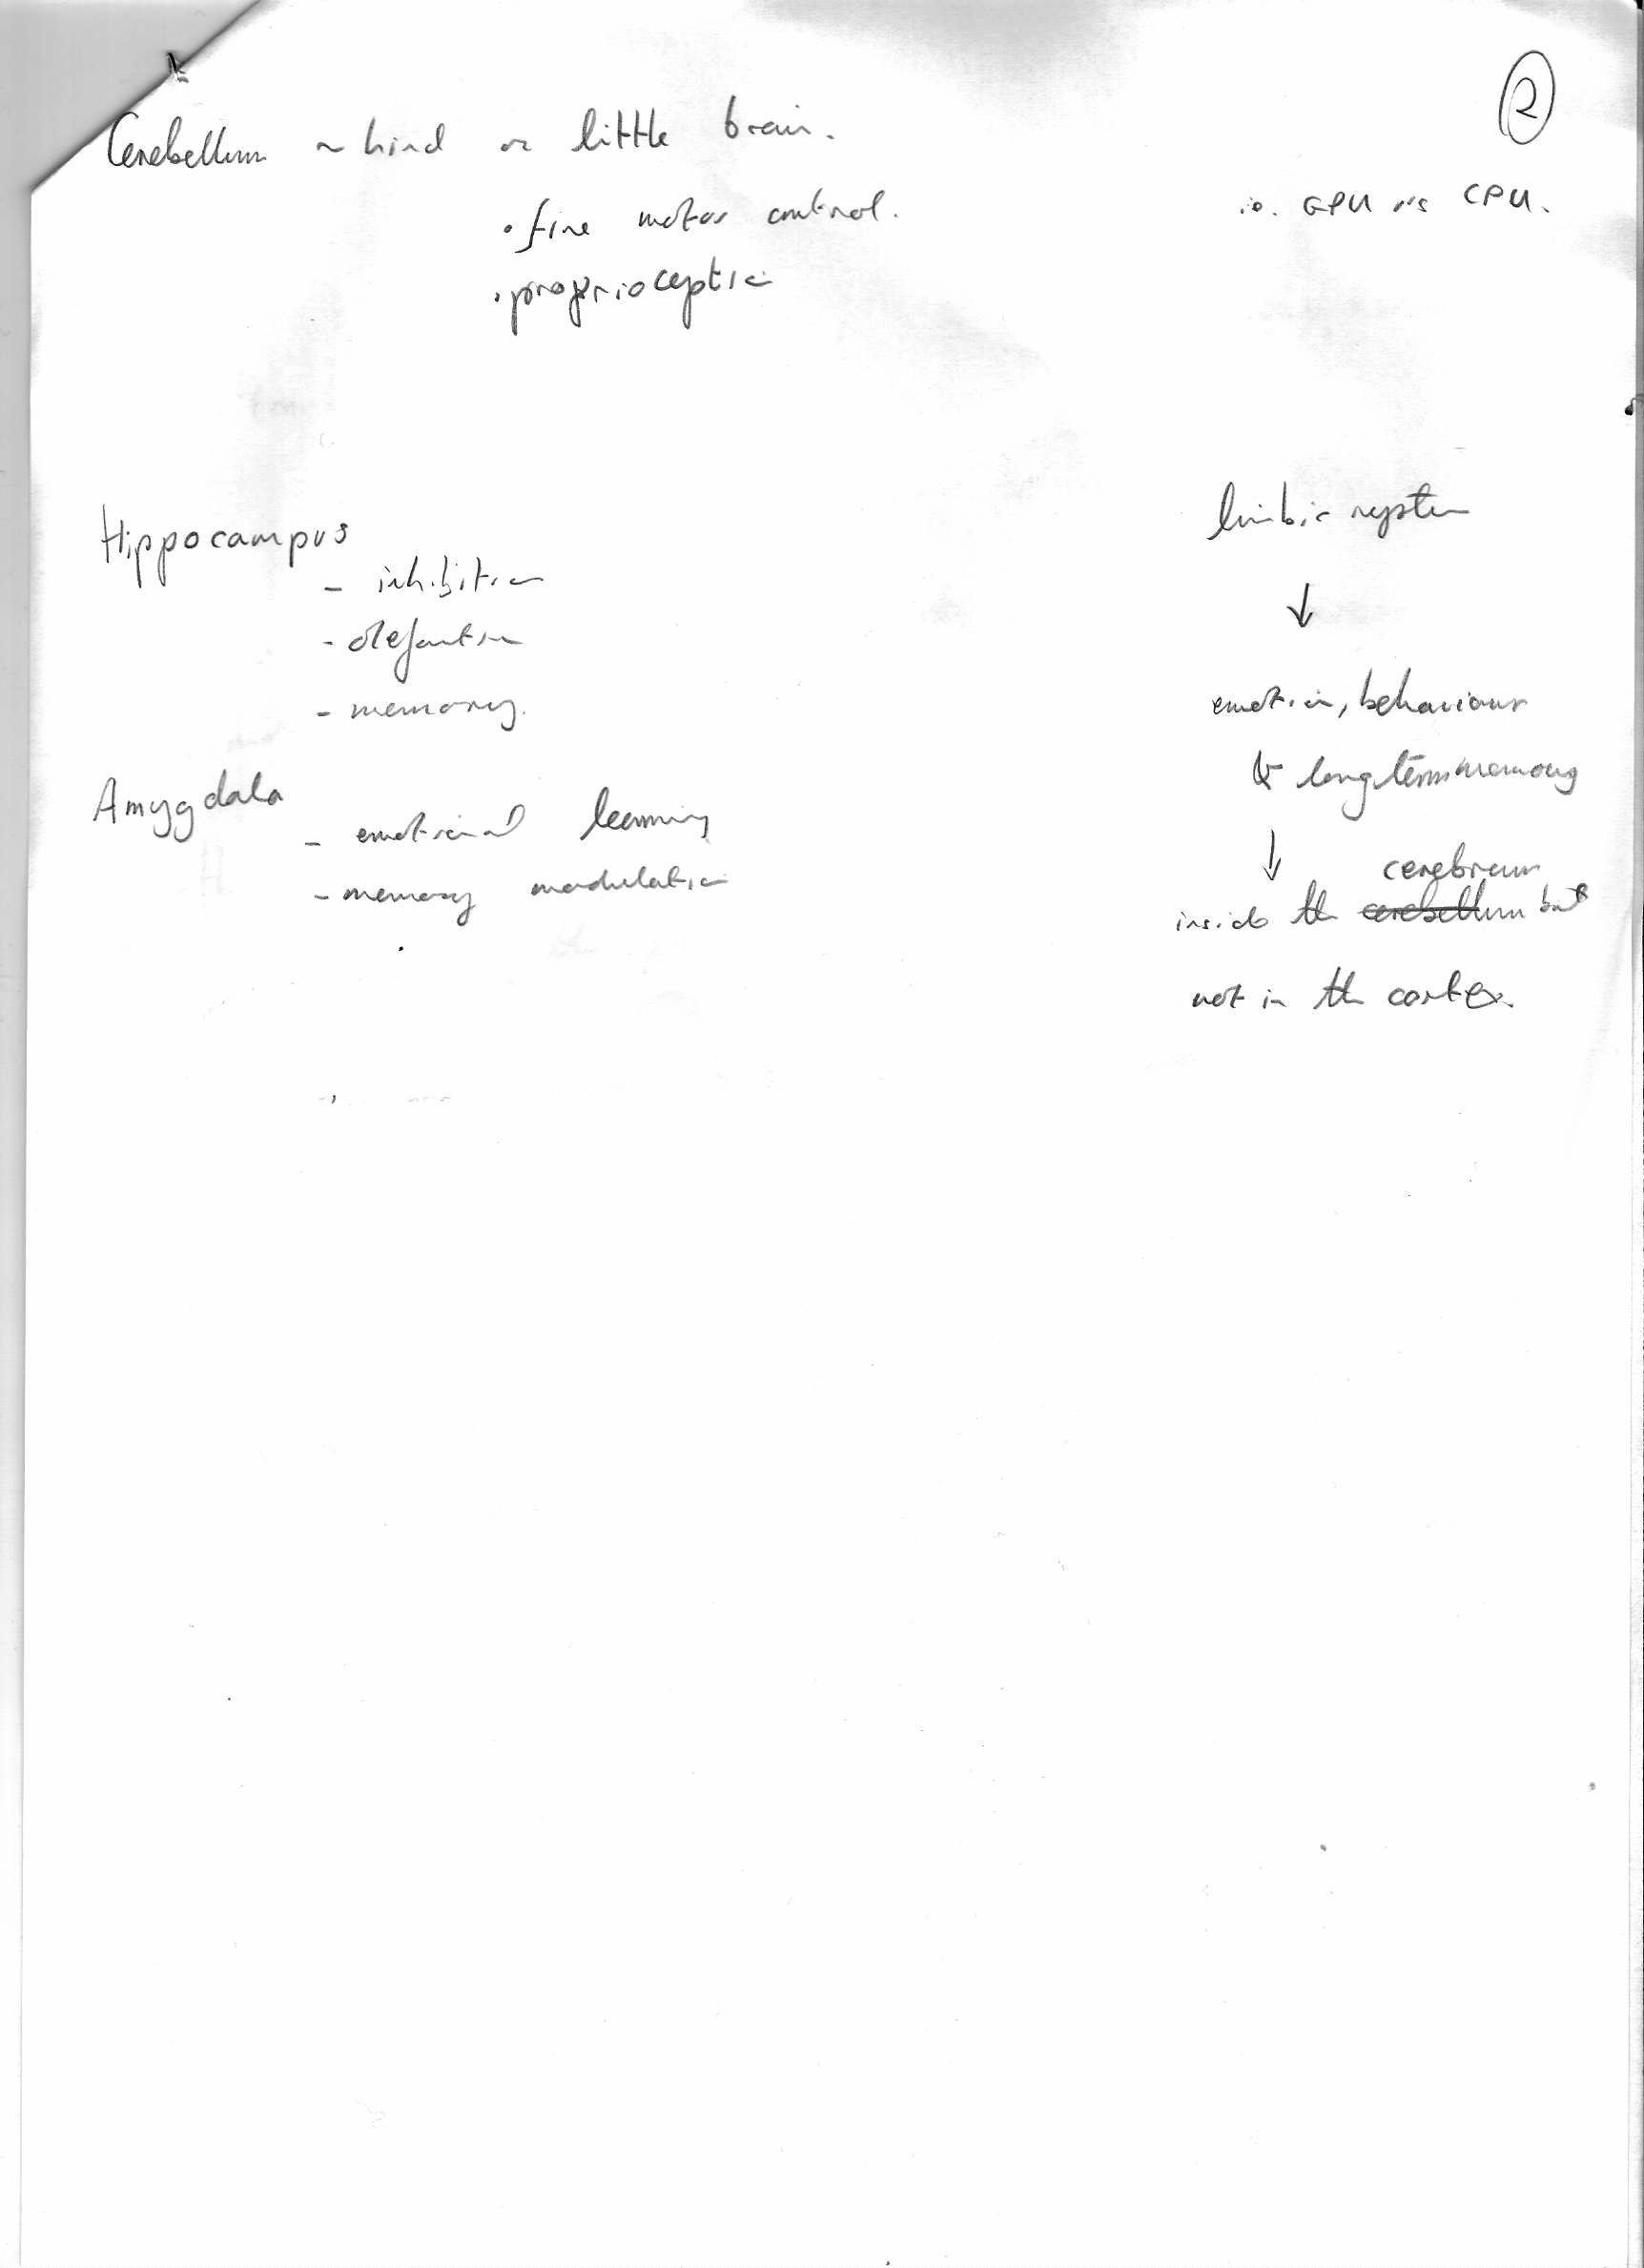 ②
Cerebellum ~ hind or little brain.
• fine motor control.
• proprioception
ie. GPU vs CPU.
Hippocampus
- inhibition
- olefaction
- memory.
Amygdala
- emotional learning
- memory modulation
limbic system
↓
emotion, behaviour
& long term memory
↓
cerebrum
inside the cerebellum but
not in the cortex.